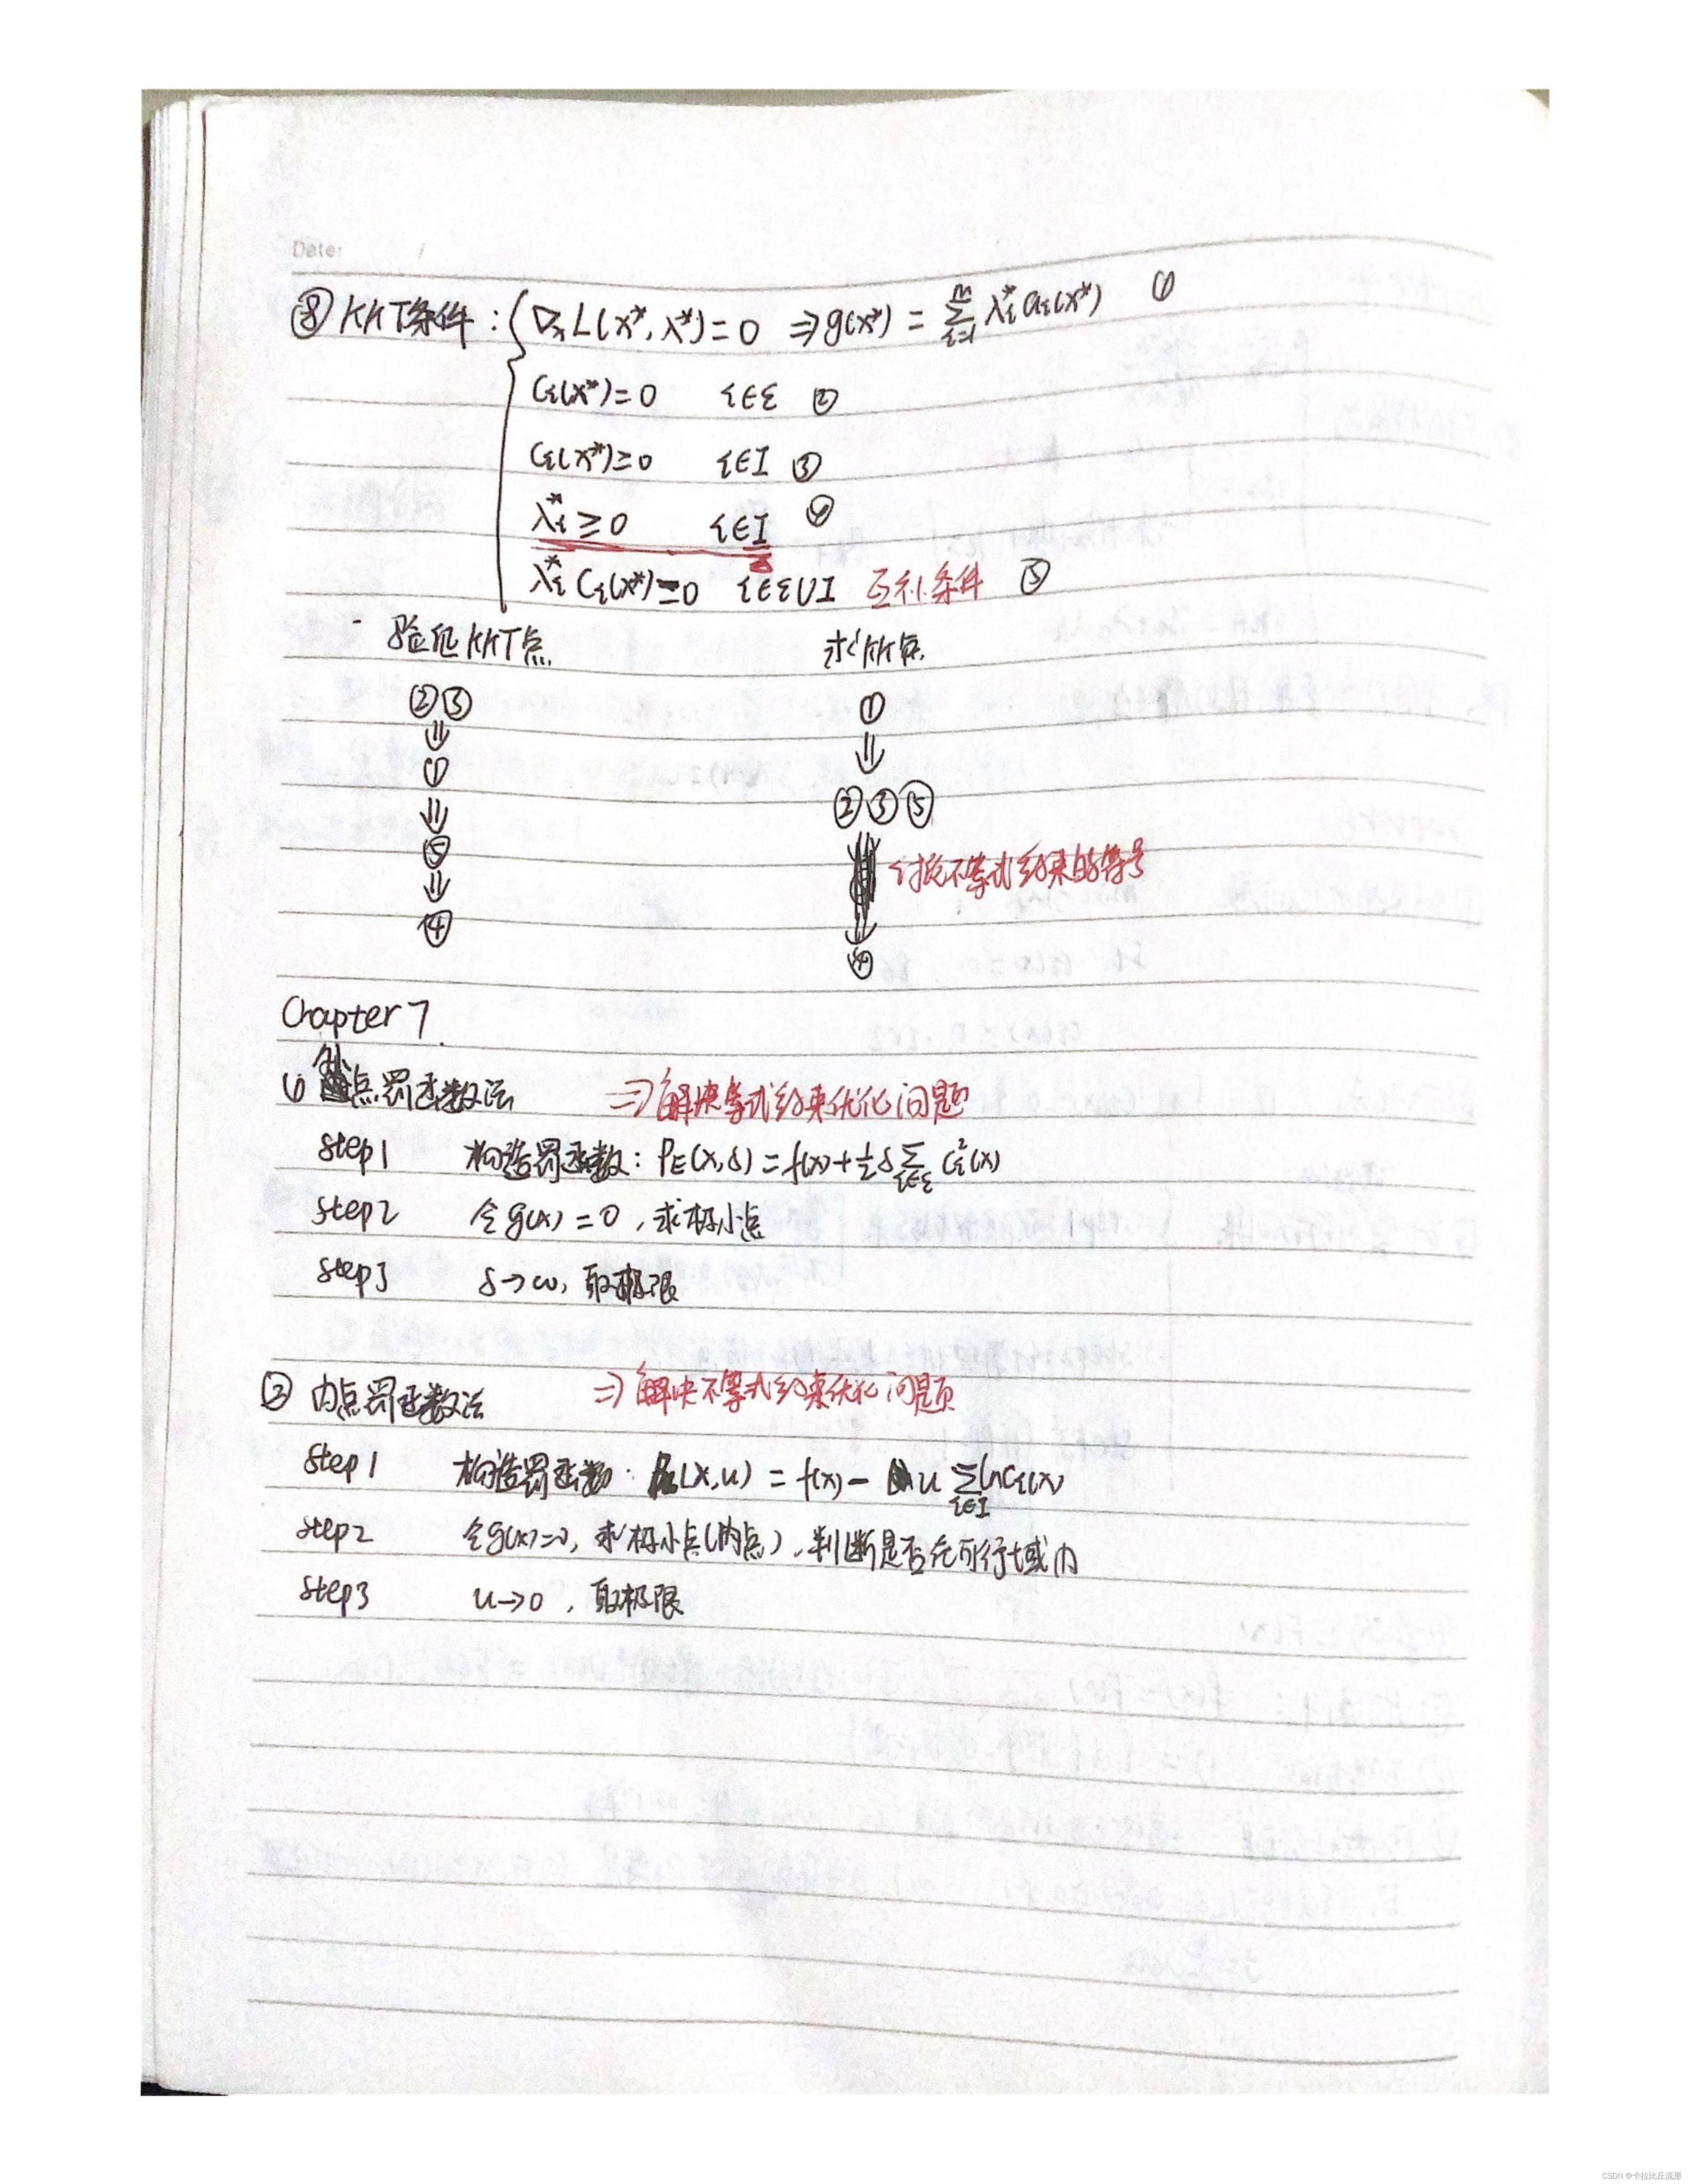 Date: /
⑧ KKT条件: { ∇ₓL(x*, λ*)=0 ⇒ g(x*) = Σ_{i=1}^{m} λᵢ* aᵢ(x*) ①
Cᵢ(x*)=0 i∈ε ②
Cᵢ(x*)≥0 i∈I ③
λᵢ*≥0 i∈I ④
λᵢ* Cᵢ(x*)=0 i∈ε∪I 互补条件 ⑤
验证KKT点 求KK点
②③ ①
⇓ ⇓
① ②③⑤
⇓
⑤ 讨论不等式约束的符号
⇓ ⇓
④ ④
Chapter 7.
① 外点罚函数法 ⇒解决等式约束优化问题
step1 构造罚函数: P_E(x,δ) = f(x)+½δ Σ_{i∈ε} Cᵢ²(x)
step2 令g(x)=0, 求极小点
step3 δ→∞, 取极限
② 内点罚函数法 ⇒解决不等式约束优化问题
step1 构造罚函数: (x,u) = f(x) - u Σ_{i∈I} lnCᵢ(x)
step2 令g(x)=0, 求极小点(内点), 判断是否在可行域内
step3 u→0, 取极限
CSDN @卡拉比丘流形